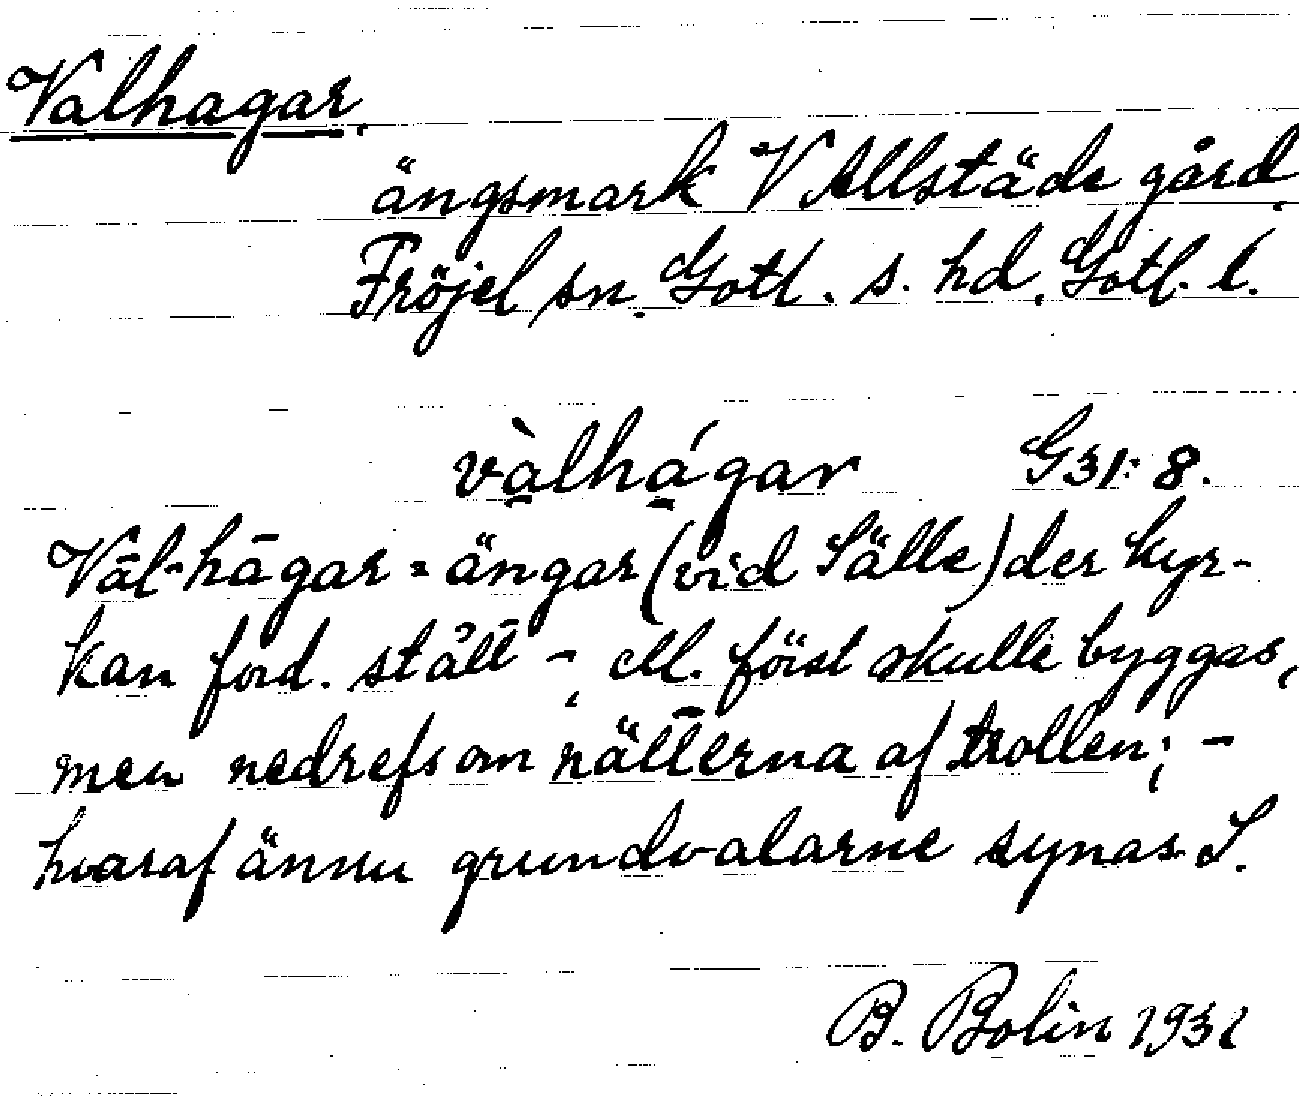 Valhagar.
ängsmark V Allstäde gård.
Fröjel sn. Gotl. s. hd. Gotl. l.
vàlhágar G31:8.
Vāl-hāgar = ängar (vid Sälle) der kyr-
kan ford. stått -, ell. först skulle byggas,
men nedrefs om nätterna af trollen; -
hvaraf ännu grundvalarne synas S.
B. Bolin 1931